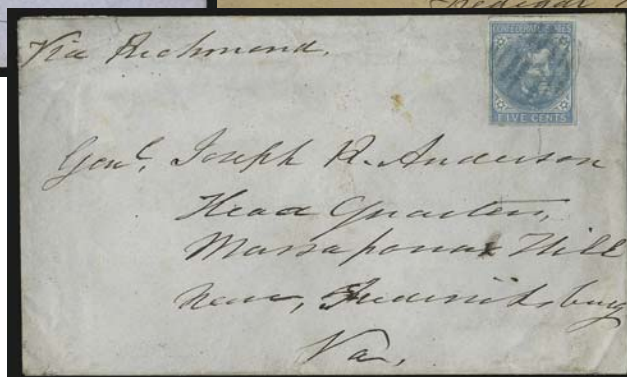 Via Richmond.
CONFEDERATE STATES
FIVE CENTS
Genl. Joseph R. Anderson
Head Quarters,
Massaponax Hill
near, Fredericksburg
Va.